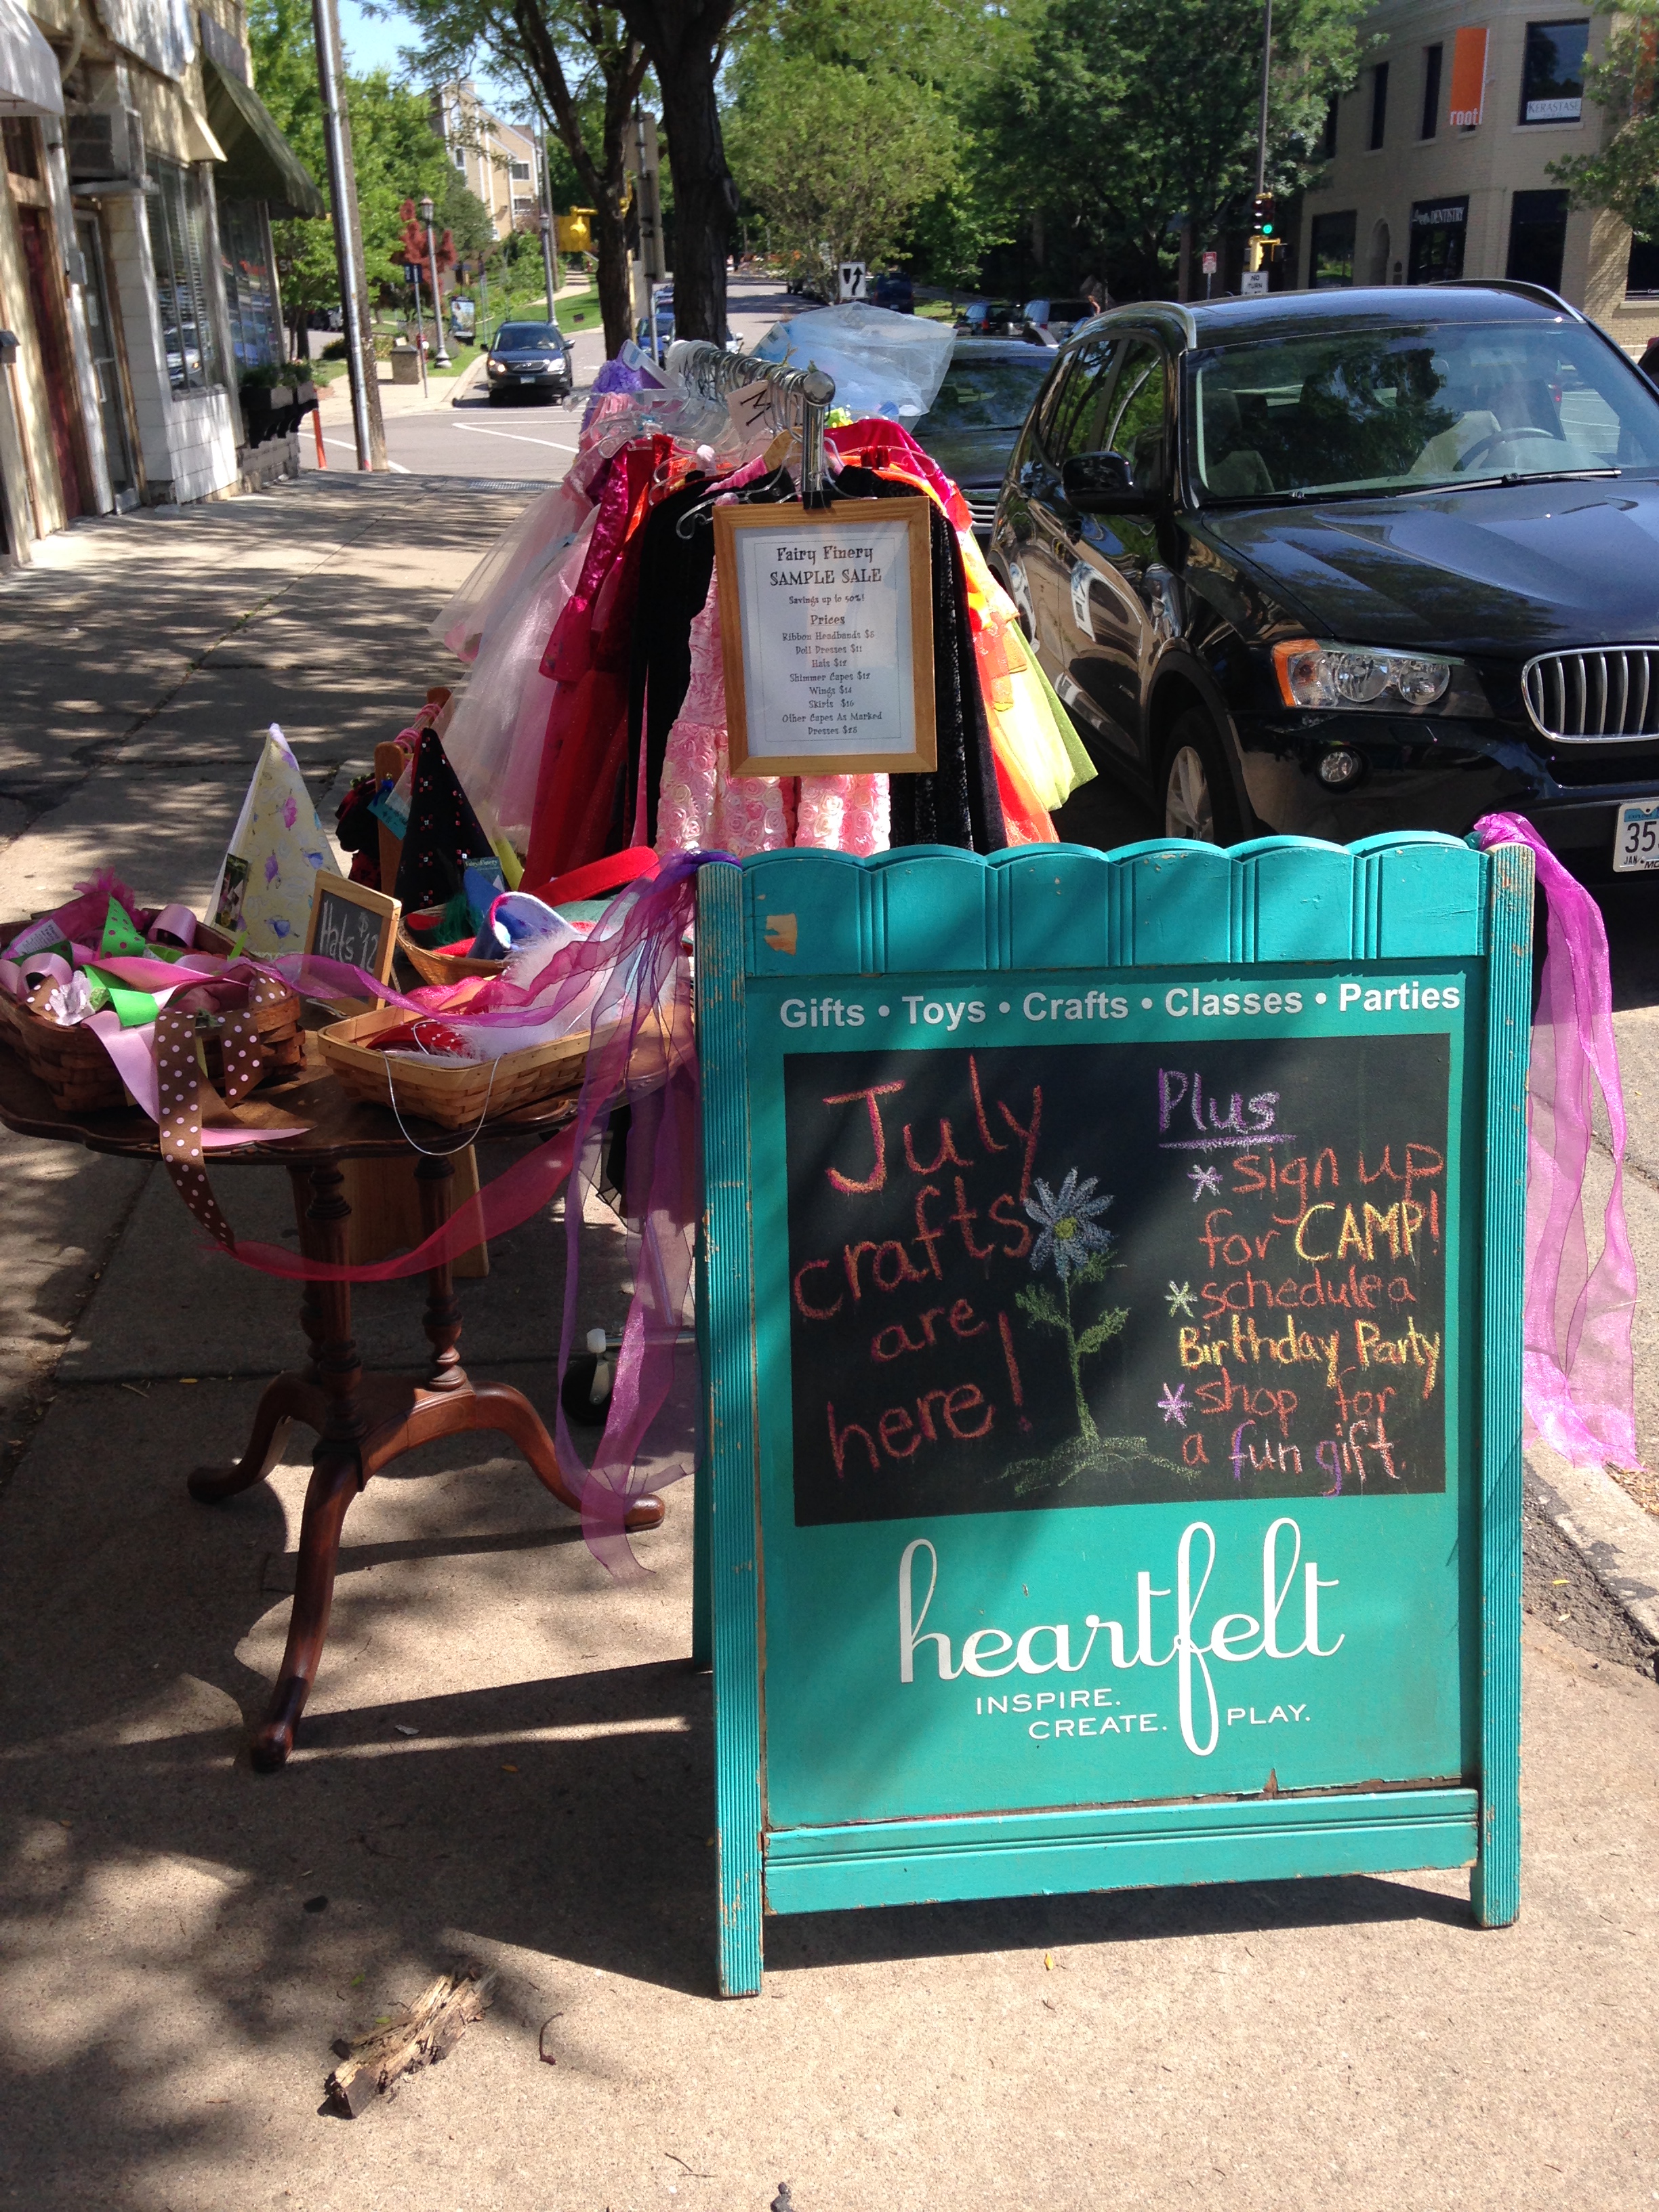 root
KERASTASE
DENTISTRY
NO
TURN
M
Fairy Finery
SAMPLE SALE
Savings up to 50%!
Prices
Ribbon Headbands
Doll Dresses $11
Hats
Shimmer Capes
Wings $14
Skirts $16
Other Capes As Marked
Dresses
Hats $12
35
JAN
Gifts • Toys • Crafts • Classes • Parties
July
crafts
are
here!
Plus
* sign up
for CAMP!
* schedule a
Birthday Party
* shop for
a fun gift.
heartfelt
INSPIRE.
CREATE. PLAY.